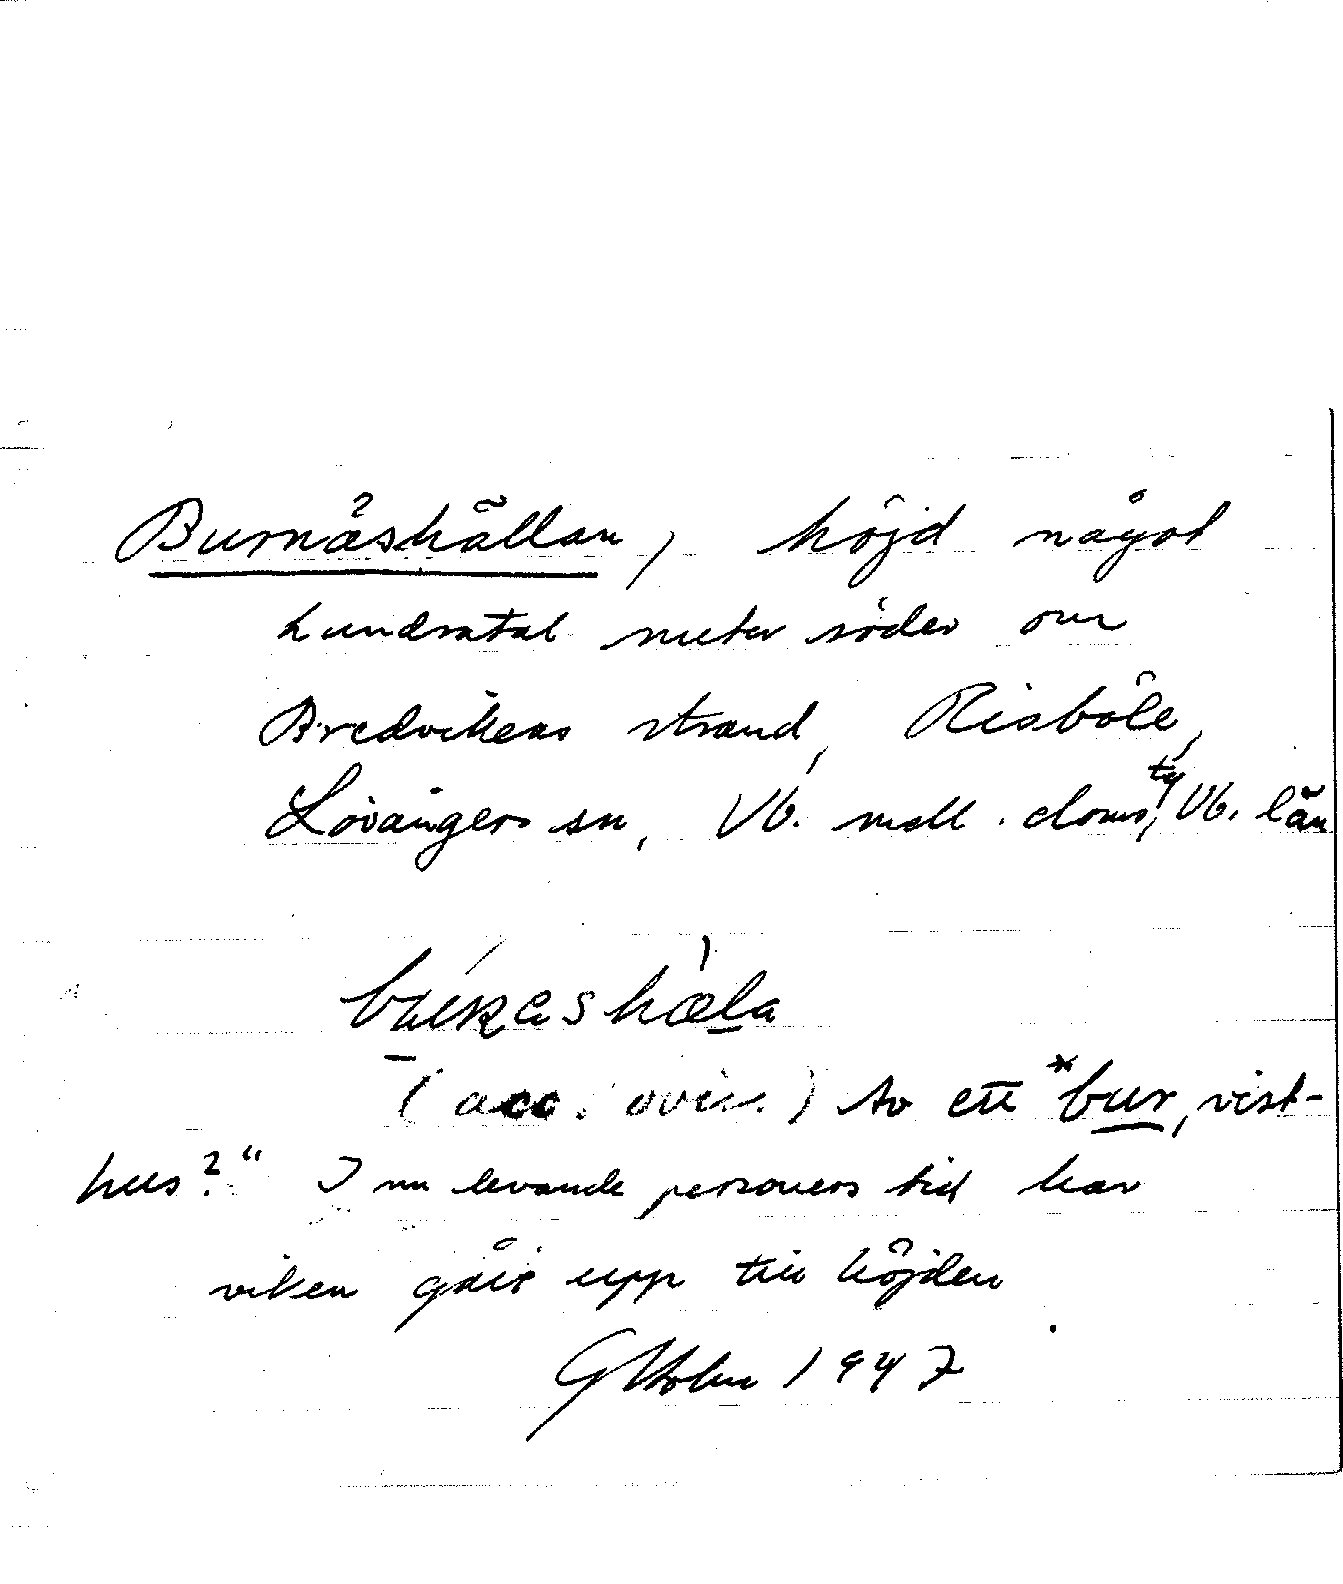 Burnäshällan, höjd något
hundratal meter söder om
Bredvikens strand, Risböle,
Lövångers sn, Vb. mell. doms, ty Vb. län
(acc. ) Av ett *bur, vist-
hus?" I nu levande personers tid har
viken gått upp till höjden
G Holm 1947